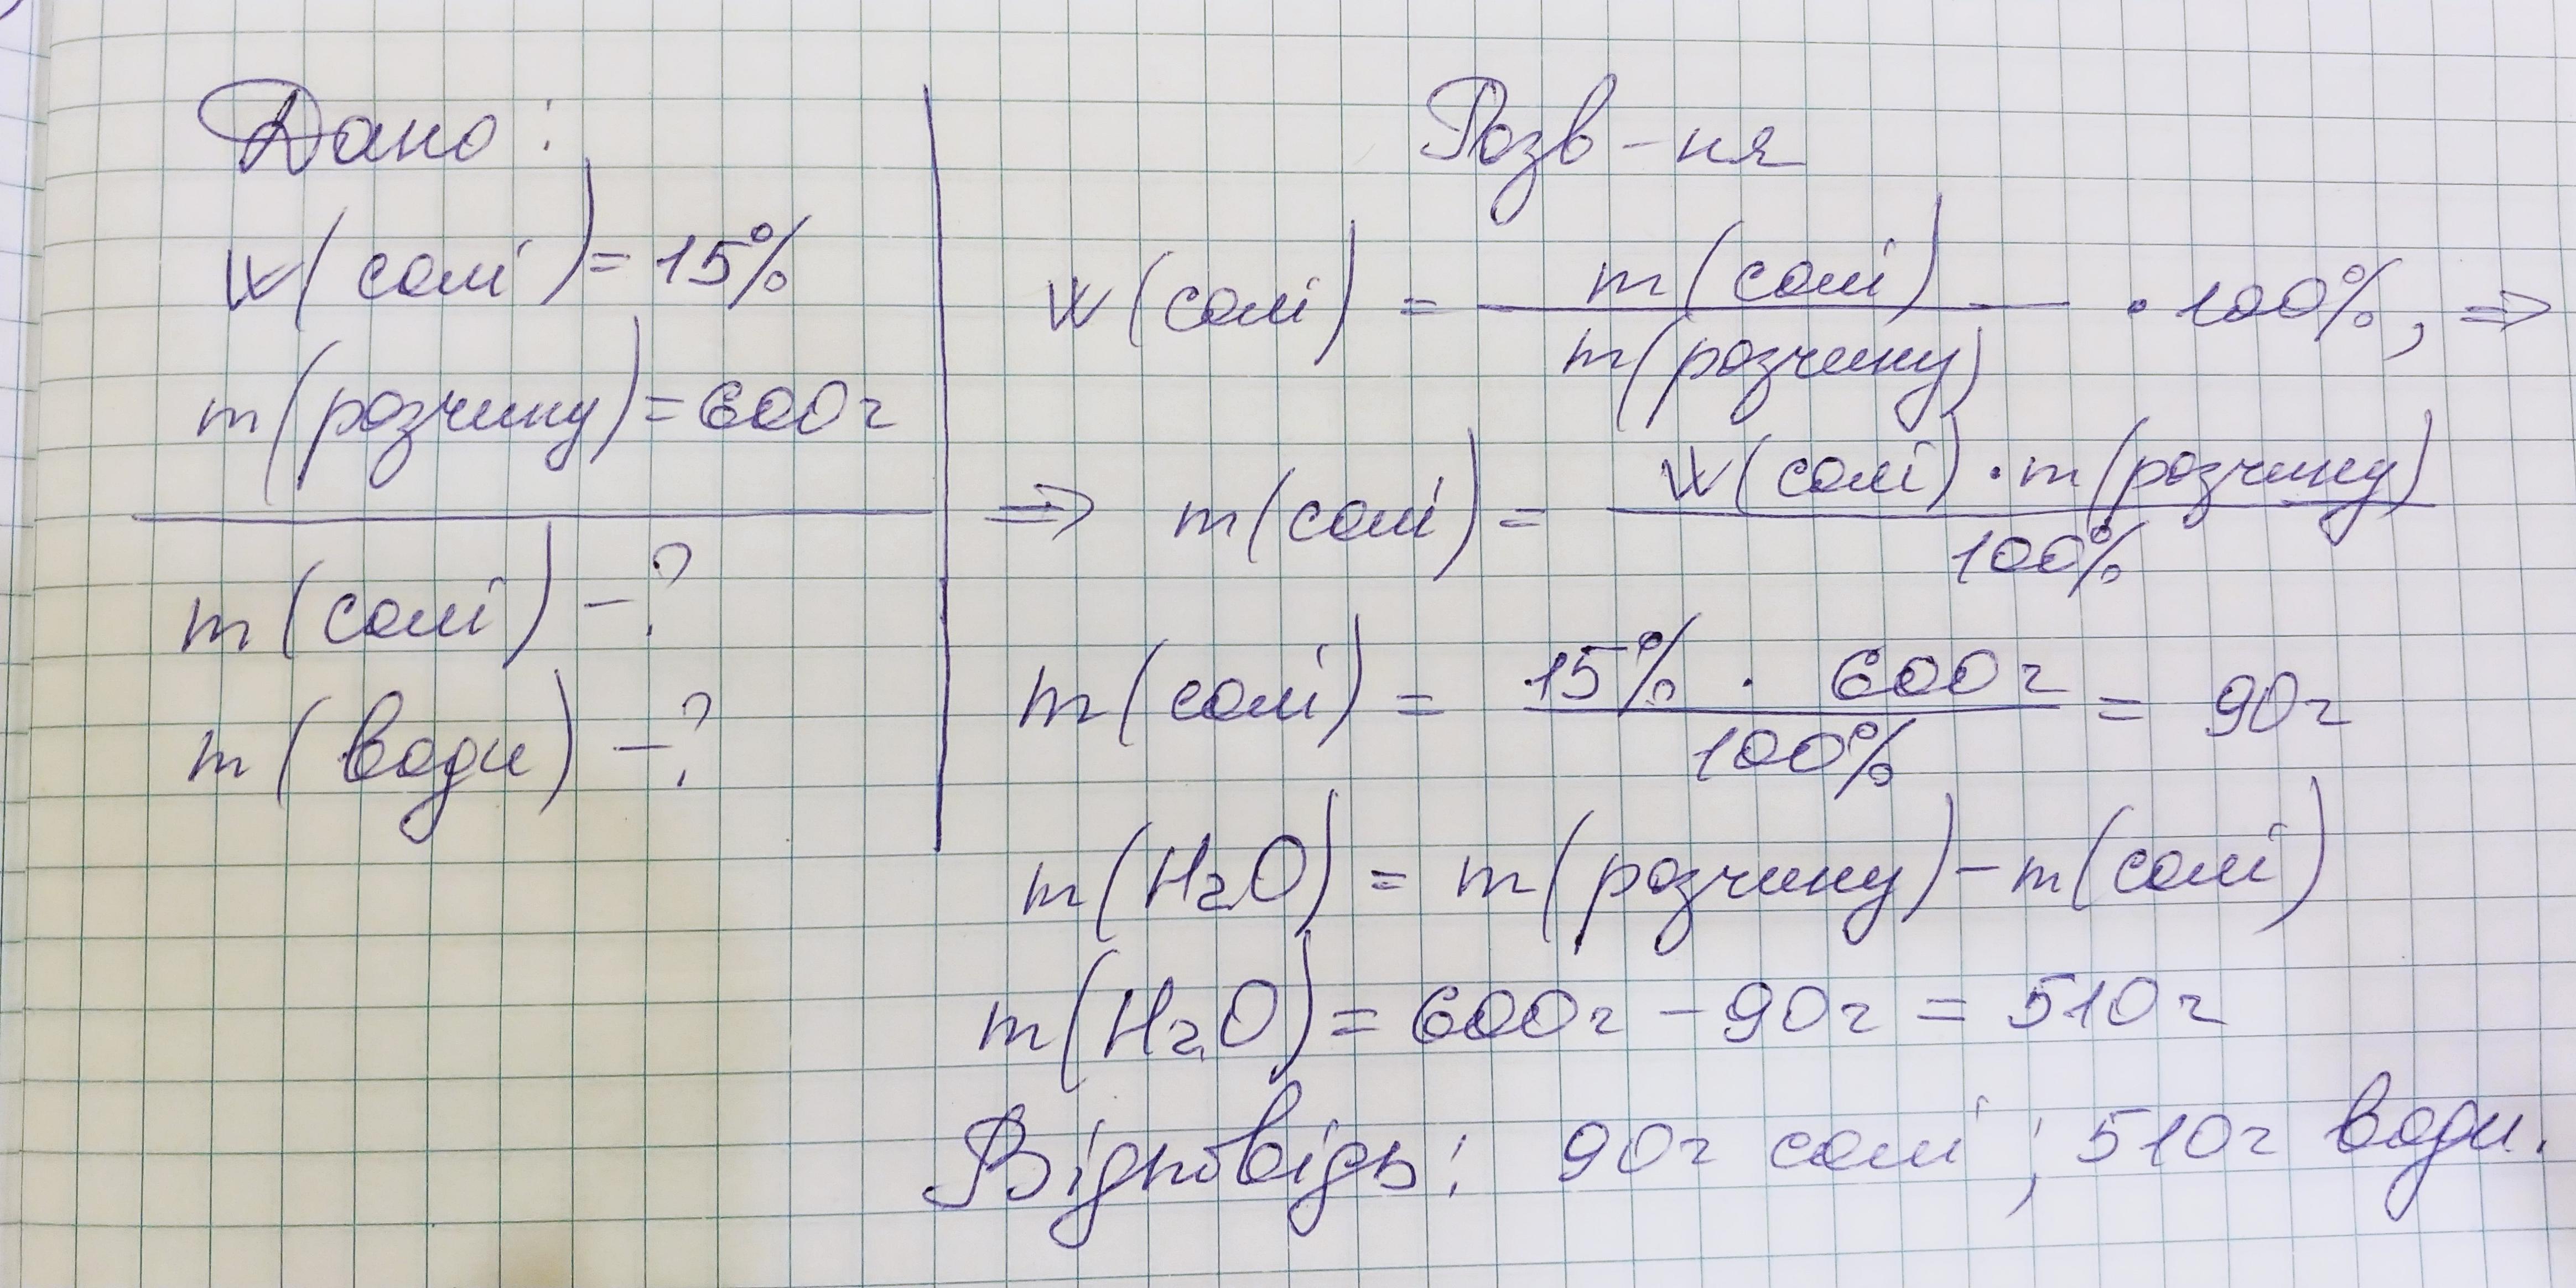 Дано:
W(солі) = 15%
m(розчину) = 600г
m(солі) – ?
m(води) – ?
Розв-ня
W(солі) = m(солі) / m(розчину) · 100%, ⇒
⇒ m(солі) = W(солі) · m(розчину) / 100%
m(солі) = 15% · 600г / 100% = 90г
m(H₂O) = m(розчину) – m(солі)
m(H₂O) = 600г – 90г = 510г
Відповідь: 90г солі; 510г води.